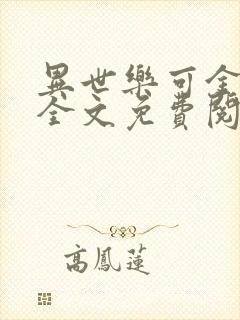 異世樂可全
全文免費閱
高鳳蓮